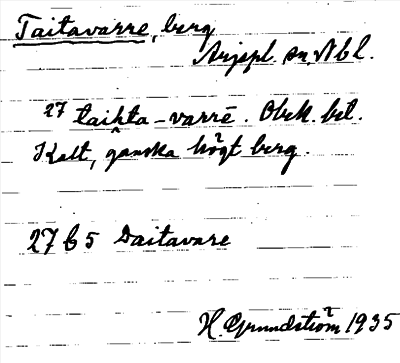 Taitavarre, berg
Arjepl. sn. Nbl.
27 taihta-varrē. Obek. bet.
Kalt, ganska högt berg.
27 b 5 Daitavare
H. Grundström 1935